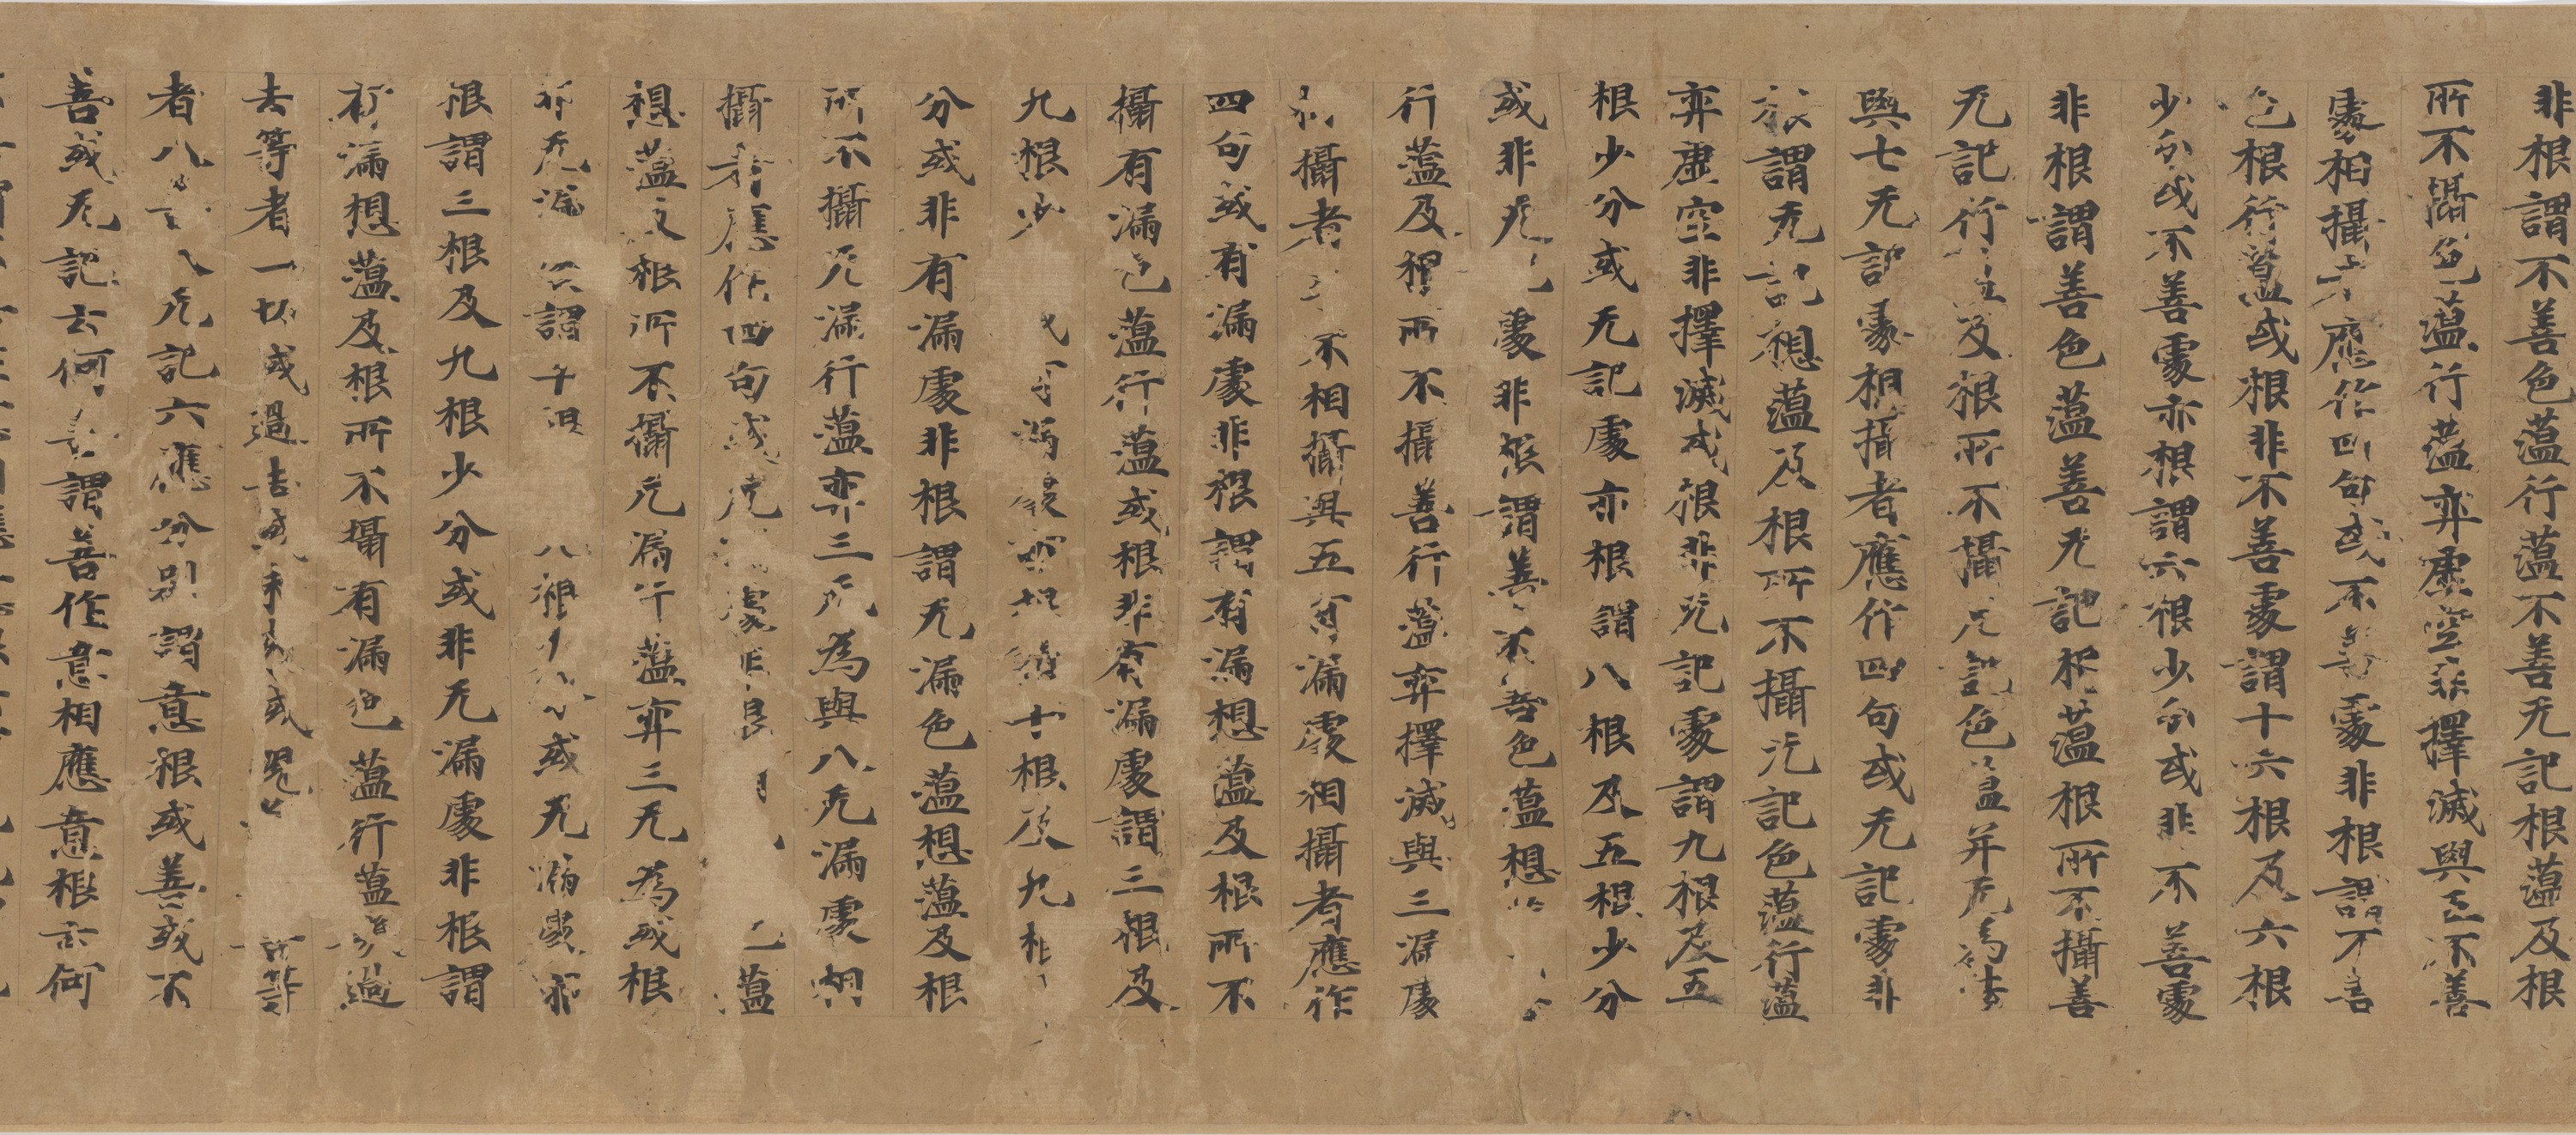 非根謂不善色蘊行蘊不善无記根蘊及根
所不攝色蘊行蘊弈虛空非擇滅與五不善
處相攝者應作四句或不善處非根謂不善
色根行蘊或根非不善處謂十六根及六根
少分或不善處亦根謂六根少分或非不善處
非根謂善色蘊善无記根蘊根所不攝善
无記行蘊及根所不攝无記色蘊并无為法
與七无記處相攝者應作四句或无記處非
根謂无記想蘊及根所不攝无記色蘊行蘊
弈虛空非擇滅或根非无記處謂九根及五
根少分或无記處亦根謂八根及五根少分
或非无記處非根謂善不善色蘊想
行蘊及根所不攝善行蘊弈擇滅與三漏處
相攝者 不相攝與五有漏處相攝者應作
四句或有漏處非根謂有漏想蘊及根所不
攝有漏色蘊行蘊或根非有漏處謂三根及
九根少 或有漏處亦根謂十根及九根
分或非有漏處非根謂无漏色蘊想蘊及根
所不攝无漏行蘊弈三无為與八无漏處相
攝者應作四句或无漏處非根 色蘊
想蘊及根所不攝无漏行蘊弈三无為或根
非无漏 謂十根 八根少分或无漏處亦
根謂三根及九根少分或非无漏處非根謂
有漏想蘊及根所不攝有漏色蘊行蘊幾過
去等者一切或過去或未來或現 幾善等
者八 八无記六應分別謂意根或善或不
善或无記云何善謂善作意相應意根云何